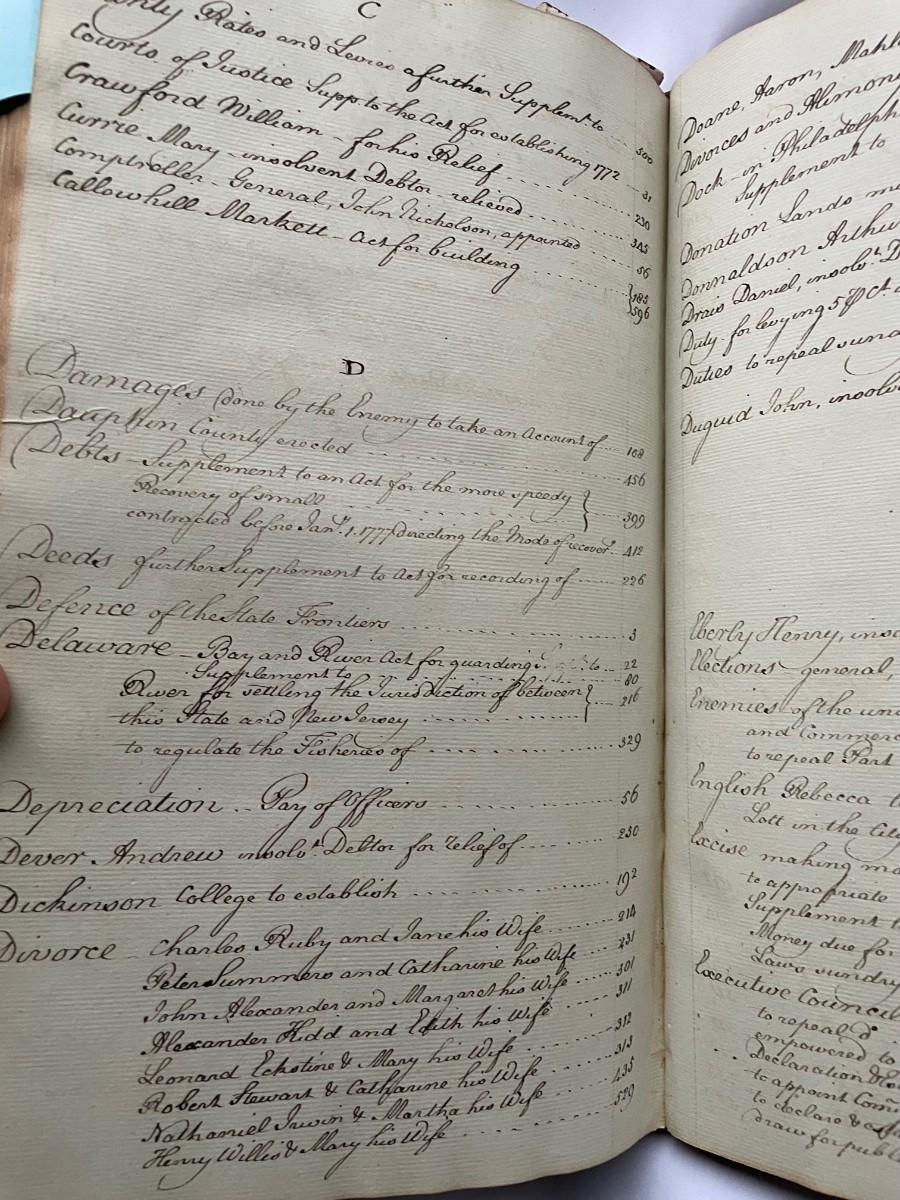 C
Rates and Levies a further Supplemt. to ... 500
Courts of Justice Supp. to the Act for establishing 1772 ... 31
Crawford William - for his Relief ... 230
Currie Mary - insolvent Debtor relieved ... 345
Comptroller - General, John Nicholson, appointed ... 56
Callowhill Markett - Act for building ... 185
596
D
Damages done by the Enemy to take an Account of ... 108
Dauphin County erected ... 456
Debts - Supplement to an Act for the more speedy
Recovery of small ... 399
contracted before Jany. 1. 1777 directing the Mode of recovery ... 412
Deeds further Supplement to Act for recording of ... 226
Defence of the State Frontiers ... 3
Delaware - Bay and River Act for guarding ... 22
Supplement to ... 80
River for settling the Jurisdiction of between
this State and New Jersey ... 216
to regulate the Fisheries of ... 329
Depreciation - Pay of Officers ... 56
Dever Andrew insolvt. Debtor for relief of ... 230
Dickinson College to establish ... 192
Divorce - Charles Ruby and Jane his Wife ... 214
Peter Summers and Catharine his Wife ... 231
John Alexander and Margaret his Wife ... 301
Alexander Kidd and Edith his Wife ... 311
Leonard Eckstine & Mary his Wife ... 312
Robert Stewart & Catharine his Wife ... 313
Nathaniel Irwin & Martha his Wife ... 435
Henry Willis & Mary his Wife ... 529
Doane, Aaron, Mahl
Divorces and Alimony
Dock - in Philadelph
Supplement to
Donation Lands
Donnaldson Arthur
Drais Daniel, insolvt. D
Duty - for levying 5 P Ct.
Duties to repeal sund
Duguid John, insolv
Eberly Henry, inso
Elections - general,
Enemies of the
and Commerc
to repeal Part
English Rebecca t
Lott in the City
Excise making
to appropriate
Supplement t
Money due for
Laws sundry
Executive Council
to repeal do.
empowered to
Declaration
to appoint Com
to declare &
draw for publ